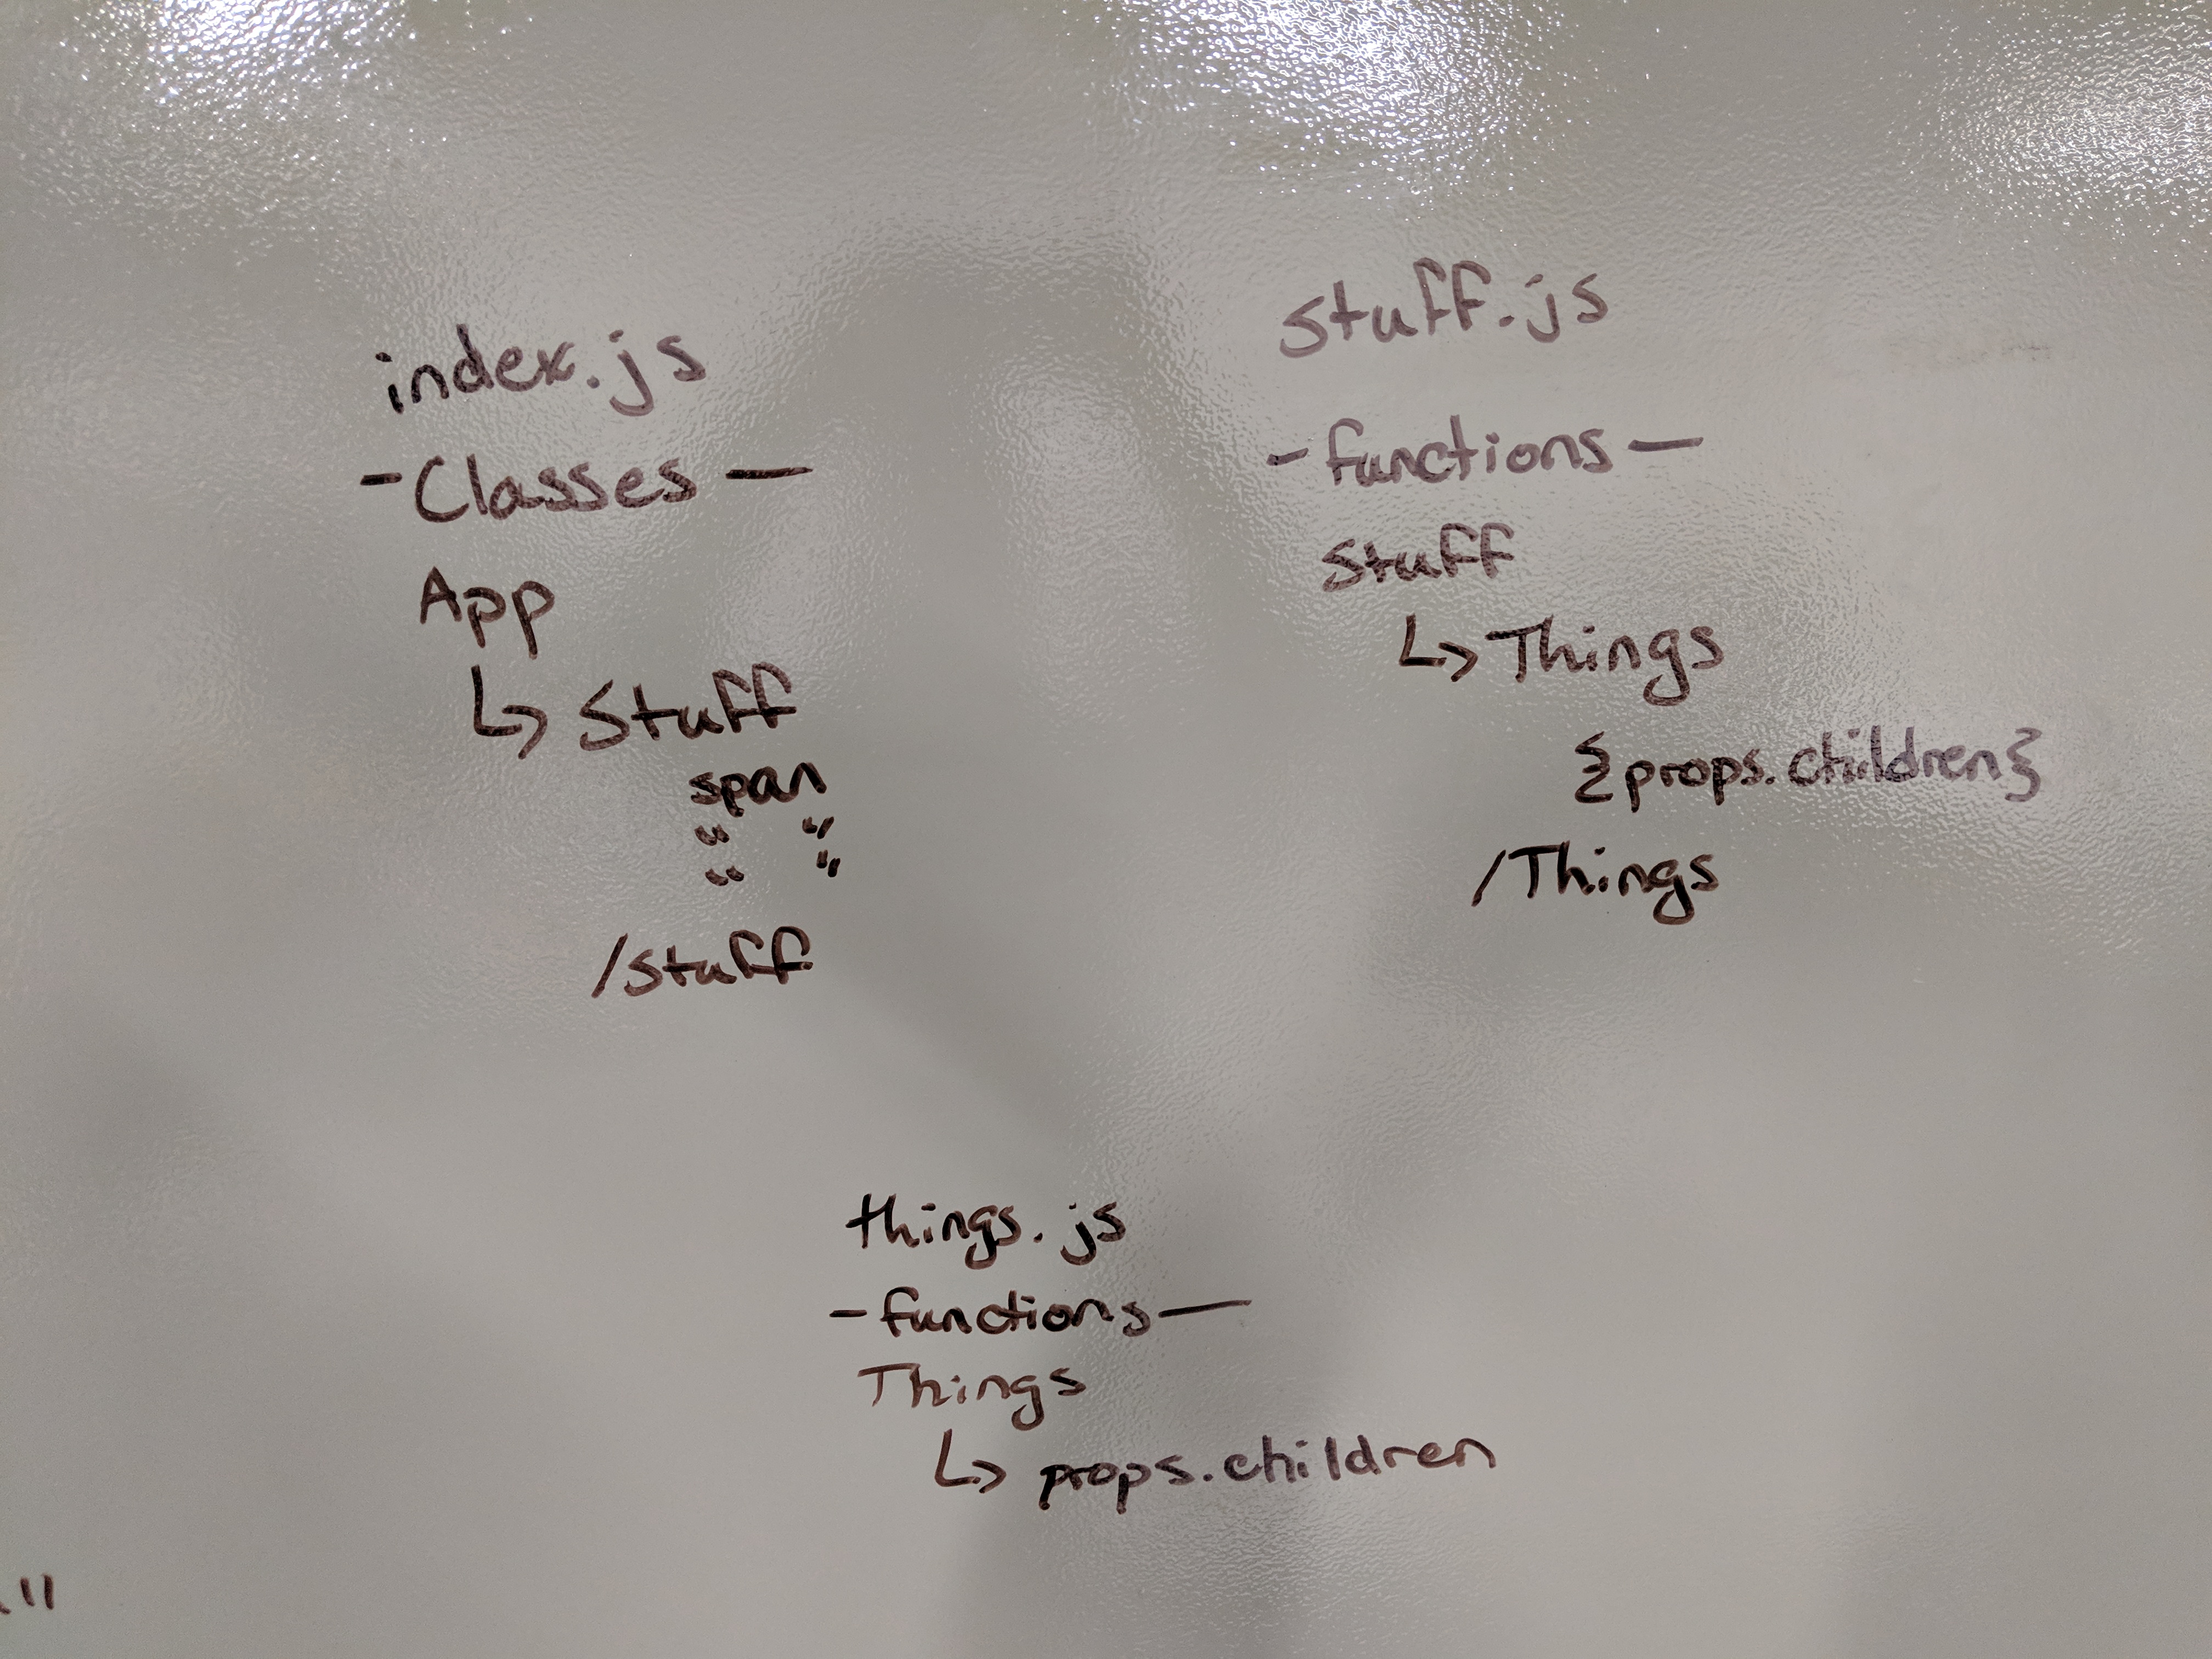 index.js
-Classes —
App
↳ Stuff
span
“ “
“ “
/stuff
stuff.js
-functions —
Stuff
↳ Things
{props.children}
/Things
things.js
-functions —
Things
↳ props.children